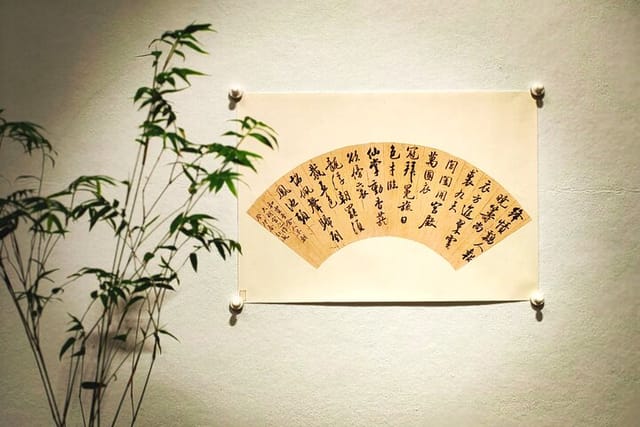 絳幘雞人報
曉籌尚
衣方進翠雲
裘九天
閶闔開宮殿
萬國衣
冠拜冕旒日
色才臨
仙掌動香煙
欲傍袞
龍浮朝罷須
裁五色
珮聲歸
鳳池頭